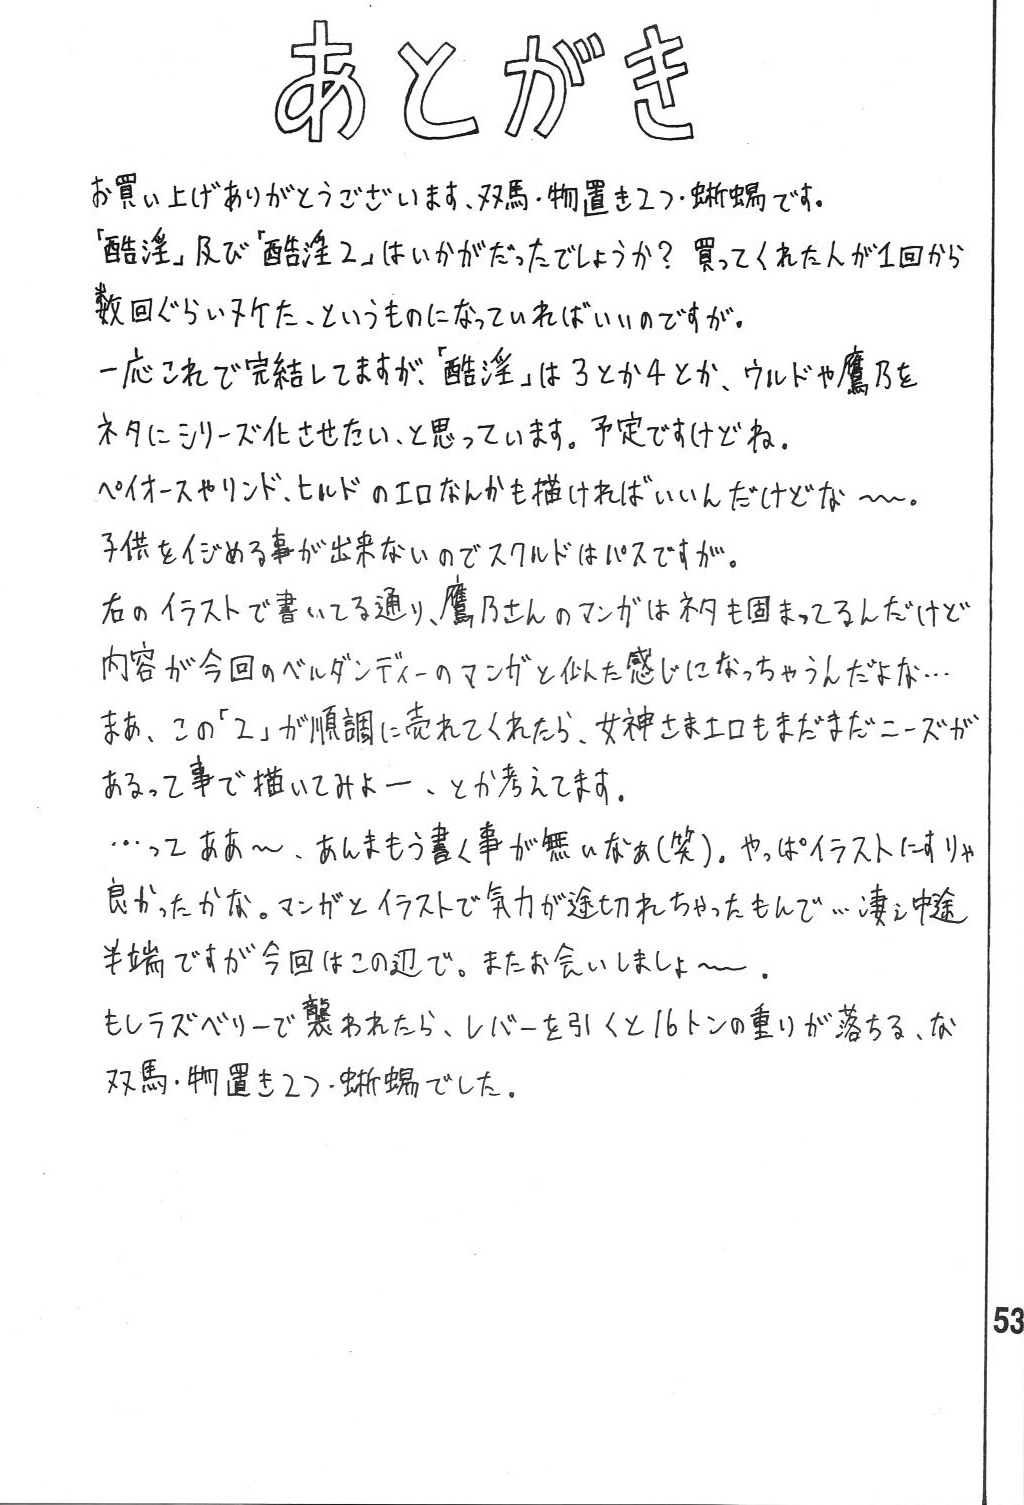 あとがき
お買い上げありがとうございます、双馬・物置き2つ・蜥蜴です。
「酷淫」及び「酷淫2」はいかがだったでしょうか？買ってくれた人が1回から
数回ぐらいヌケた、というものになっていればいいのですが。
一応これで完結してますが、「酷淫」は3とか4とか、ウルドや鷹乃を
ネタにシリーズ化させたい、と思っています。予定ですけどね。
ペイオースやリンド、ヒルドのエロなんかも描ければいいんだけどな〜〜。
子供をイジめる事が出来ないのでスクルドはパスですが。
右のイラストで書いてる通り、鷹乃さんのマンガはネタも固まってるんだけど
内容が今回のベルダンディーのマンガと似た感じになっちゃうんだよな…
まあ、この「2」が順調に売れてくれたら、女神さまエロもまだまだニーズが
あるって事で描いてみよー、とか考えてます。
…ってああ〜、あんまもう書く事が無いなぁ（笑）。やっぱイラストにすりゃ
良かったかな。マンガとイラストで気力が途切れちゃったもんで…凄ェ中途
半端ですが今回はこの辺で。またお会いしましょ〜〜。
もしラズベリーで襲われたら、レバーを引くと16トンの重りが落ちる、な
双馬・物置き2つ・蜥蜴でした。
53